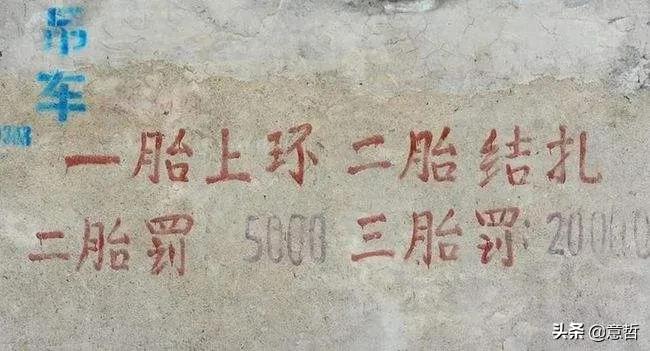 吊车
一胎上环 二胎结扎
二胎罚 5000 三胎罚:20000
头条 @意哲